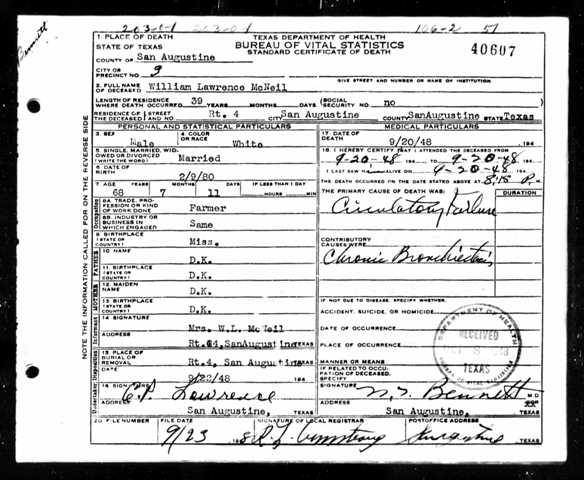 Bennett
1 PLACE OF DEATH
STATE OF TEXAS
TEXAS DEPARTMENT OF HEALTH
BUREAU OF VITAL STATISTICS
STANDARD CERTIFICATE OF DEATH
40607
COUNTY OF San Augustine
CITY OR PRECINCT NO. 3
GIVE STREET AND NUMBER OR NAME OF INSTITUTION
2. FULL NAME OF DECEASED William Lawrence McNeil
LENGTH OF RESIDENCE WHERE DEATH OCCURRED 39 YEARS MONTHS DAYS (SOCIAL SECURITY NO. no
RESIDENCE OF THE DECEASED STREET AND NO. Rt. 4 CITY San Augustine COUNTY SanAugustine STATE Texas
PERSONAL AND STATISTICAL PARTICULARS
MEDICAL PARTICULARS
3. SEX Male
4. COLOR OR RACE White
17 DATE OF DEATH 9/20/48 194
5. SINGLE, MARRIED, WIDOWED OR DIVORCED (WRITE THE WORD) Married
18. I HEREBY CERTIFY THAT I ATTENDED THE DECEASED FROM
9-20-48 194 TO 9-20-48 194
6. DATE OF BIRTH 2/9/80
I LAST SAW ALIVE ON 9-20-48 194
THE DEATH OCCURRED ON THE DATE STATED ABOVE AT 8:15 P.
7 AGE YEARS MONTHS DAYS IF LESS THAN 1 DAY
68 7 11 HOURS MIN
THE PRIMARY CAUSE OF DEATH WAS: DURATION
Circulatory Failure
8A. TRADE, PROFESSION OR KIND OF WORK DONE Farmer
8B. INDUSTRY OR BUSINESS IN WHICH ENGAGED Same
9. BIRTHPLACE (STATE OR COUNTRY) Miss.
CONTRIBUTORY CAUSES WERE
Chronic Bronchiectasis
FATHER
10 NAME D.K.
11. BIRTHPLACE (STATE OR COUNTRY) D.K.
MOTHER
12. MAIDEN NAME D.K.
IF NOT DUE TO DISEASE, SPECIFY WHETHER:
13. BIRTHPLACE (STATE OR COUNTRY) D.K.
ACCIDENT, SUICIDE, OR HOMICIDE
14 SIGNATURE Mrs. W.L. McNeil
DATE OF OCCURRENCE
ADDRESS Rt. 4, SanAugustine TEXAS
PLACE OF OCCURRENCE
15 PLACE OF BURIAL OR REMOVAL Rt.4, San Augustine TEXAS
MANNER OR MEANS
IF RELATED TO OCCUPATION OF DECEASED, SPECIFY
DEPARTMENT OF HEALTH
RECEIVED
VITAL STATISTICS
TEXAS
DATE 9/22/48 194
16 SIGNATURE Lawrence
ADDRESS San Augustine, TEXAS
SIGNATURE Bennett M D
ADDRESS San Augustine, TEXAS
20 FILE NUMBER FILE DATE 9/23 1948 SIGNATURE OF LOCAL REGISTRAR POSTOFFICE ADDRESS TEXAS
NOTE THE INFORMATION CALLED FOR ON THE REVERSE SIDE